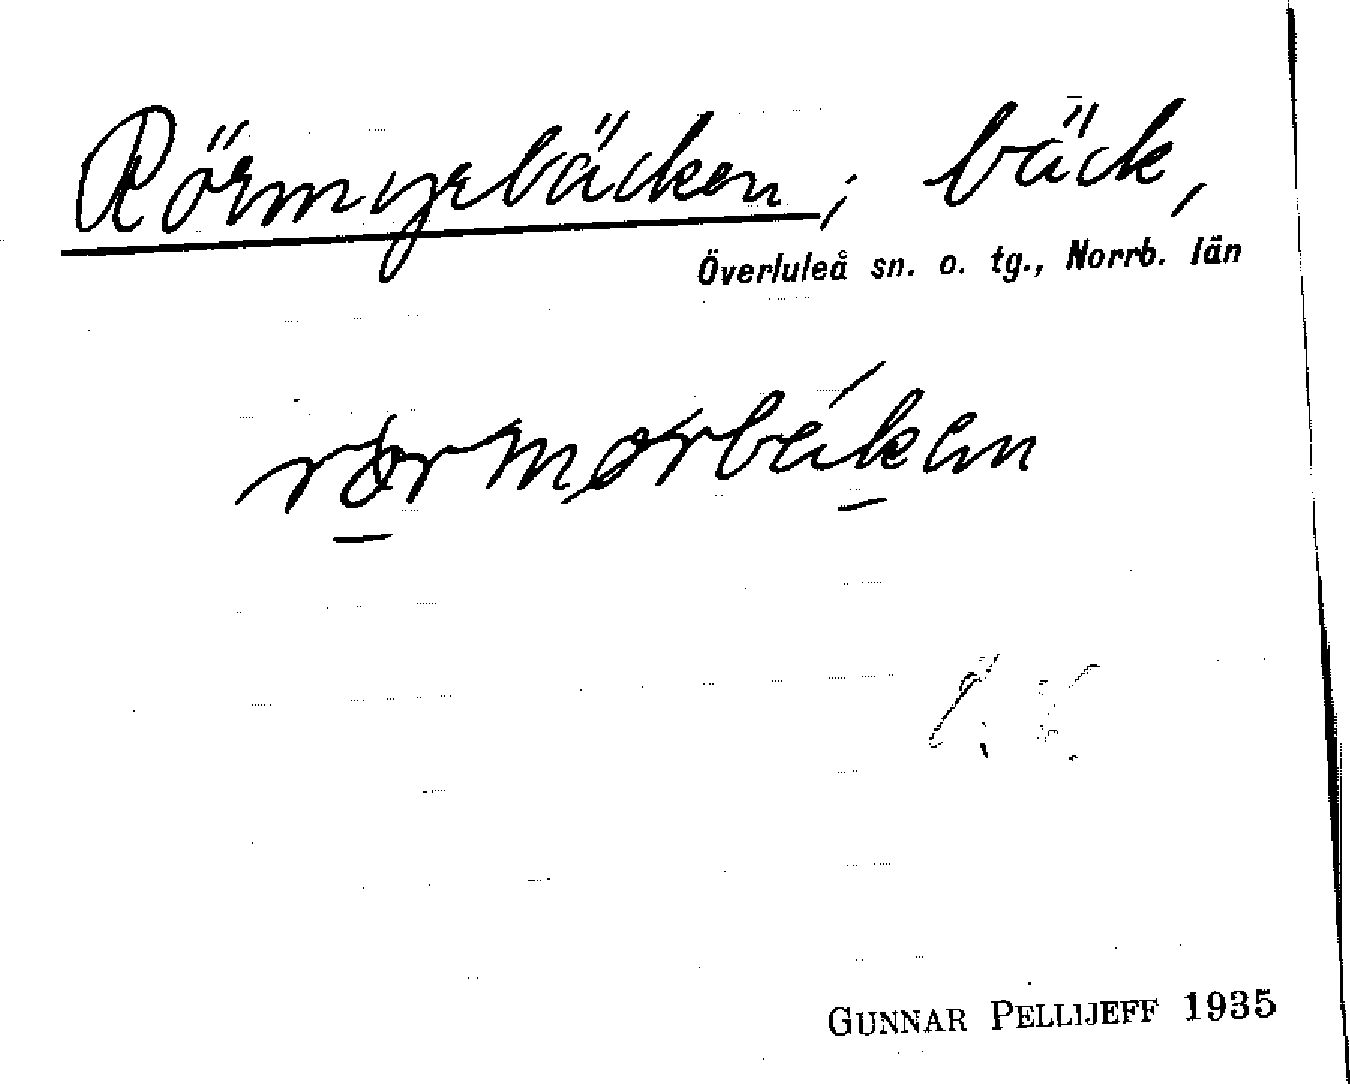 Rörmyrbäcken; bäck,
Överluleå sn. o. tg., Norrb. län
GUNNAR PELLIJEFF 1935